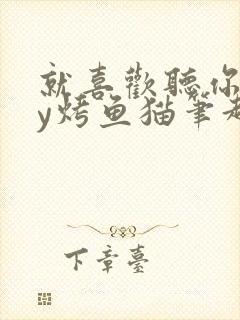 就喜歡聽你
y烤鱼猫筆趣
下章臺